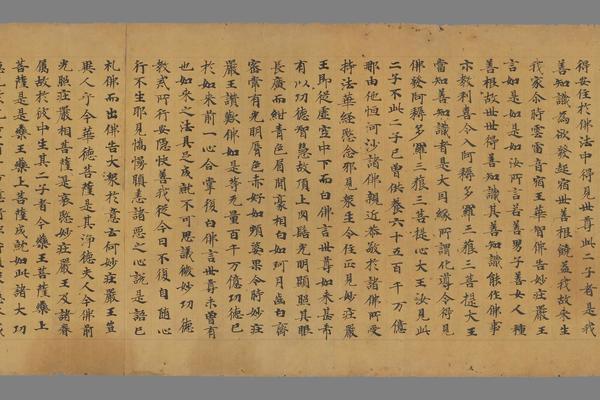 得安住於佛法中得見世尊此二子者是我
善知識為欲發起宿世善根饒益我故來生
我家尒時雲雷音宿王華智佛告妙莊嚴王
言如是如是如汝所言若善男子善女人種
善根故世世得善知識其善知識能作佛事
示教利喜令入阿耨多羅三藐三菩提大王
當知善知識者是大因緣所謂化導令得見
佛發阿耨多羅三藐三菩提心大王汝見此
二子不此二子已曾供養六十五百千万億
那由他恒河沙諸佛親近恭敬於諸佛所受
持法華經愍念邪見衆生令住正見妙莊嚴
王即從虛空中下而白佛言世尊如來甚希
有以功德智慧故頂上肉髻光明顯照其眼
長廣而紺青色眉間豪相白如珂月齒白齊
密常有光明脣色赤好如頻婆菓尒時妙莊
嚴王讚歎佛如是等无量百千万億功德已
於如來前一心合掌復白佛言世尊未曾有
也如來之法具足成就不可思議微妙功德
教戒所行安隱快善我從今日不復自隨心
行不生邪見憍慢瞋恚諸惡之心說是語已
礼佛而出佛告大衆於意云何妙莊嚴王豈
異人乎今華德菩薩是其淨德夫人今佛前
光照莊嚴相菩薩是哀愍妙莊嚴王及諸眷
屬故於彼中生其二子者今藥王菩薩藥上
菩薩是是藥王藥上菩薩成就如此諸大功